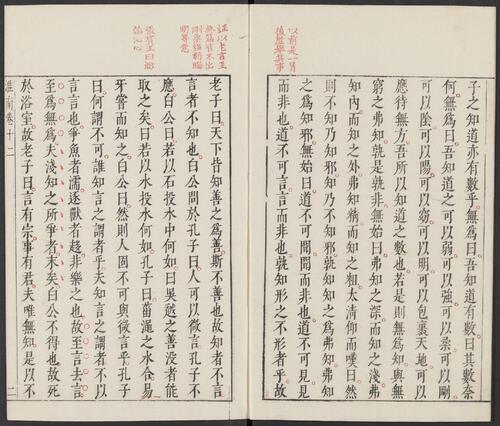 以前是一首
後歷舉其事
子之知道亦有數乎無爲曰吾知道有數曰其數奈
何無爲曰吾知道之可以弱可以強可以柔可以剛
可以陰可以陽可以窈可以明可以包裹天地可以
應待無方吾所以知道之數也若是則無爲知與無
窮之弗知孰是孰非無始曰弗知之深而知之淺弗
知內而知之外弗知精而知之粗太清仰而嘆曰然
則不知乃知邪知乃不知邪孰知知之爲弗知弗知
之爲知邪無始曰道不可聞聞而非也道不可見見
而非也道不可言言而非也孰知形之不形者乎故
張賓王曰妙
老子曰天下皆知善之爲善斯不善也故知者不言
言者不知也白公問於孔子曰人可以微言孔子不
應白公曰若以石投水中何如曰吳越之善没者能
取之矣曰若以水投水何如孔子曰菑澠之水合易
牙嘗而知之白公曰然則人固不可與微言乎孔子
曰何謂不可誰知言之謂者乎夫知言之謂者不以
言言也爭魚者濡逐獸者趨非樂之也故至言去言
至爲無爲夫淺知之所爭者末矣白公不得也故死
於浴室故老子曰言有宗事有君夫唯無知是以不
淮南卷十二
二